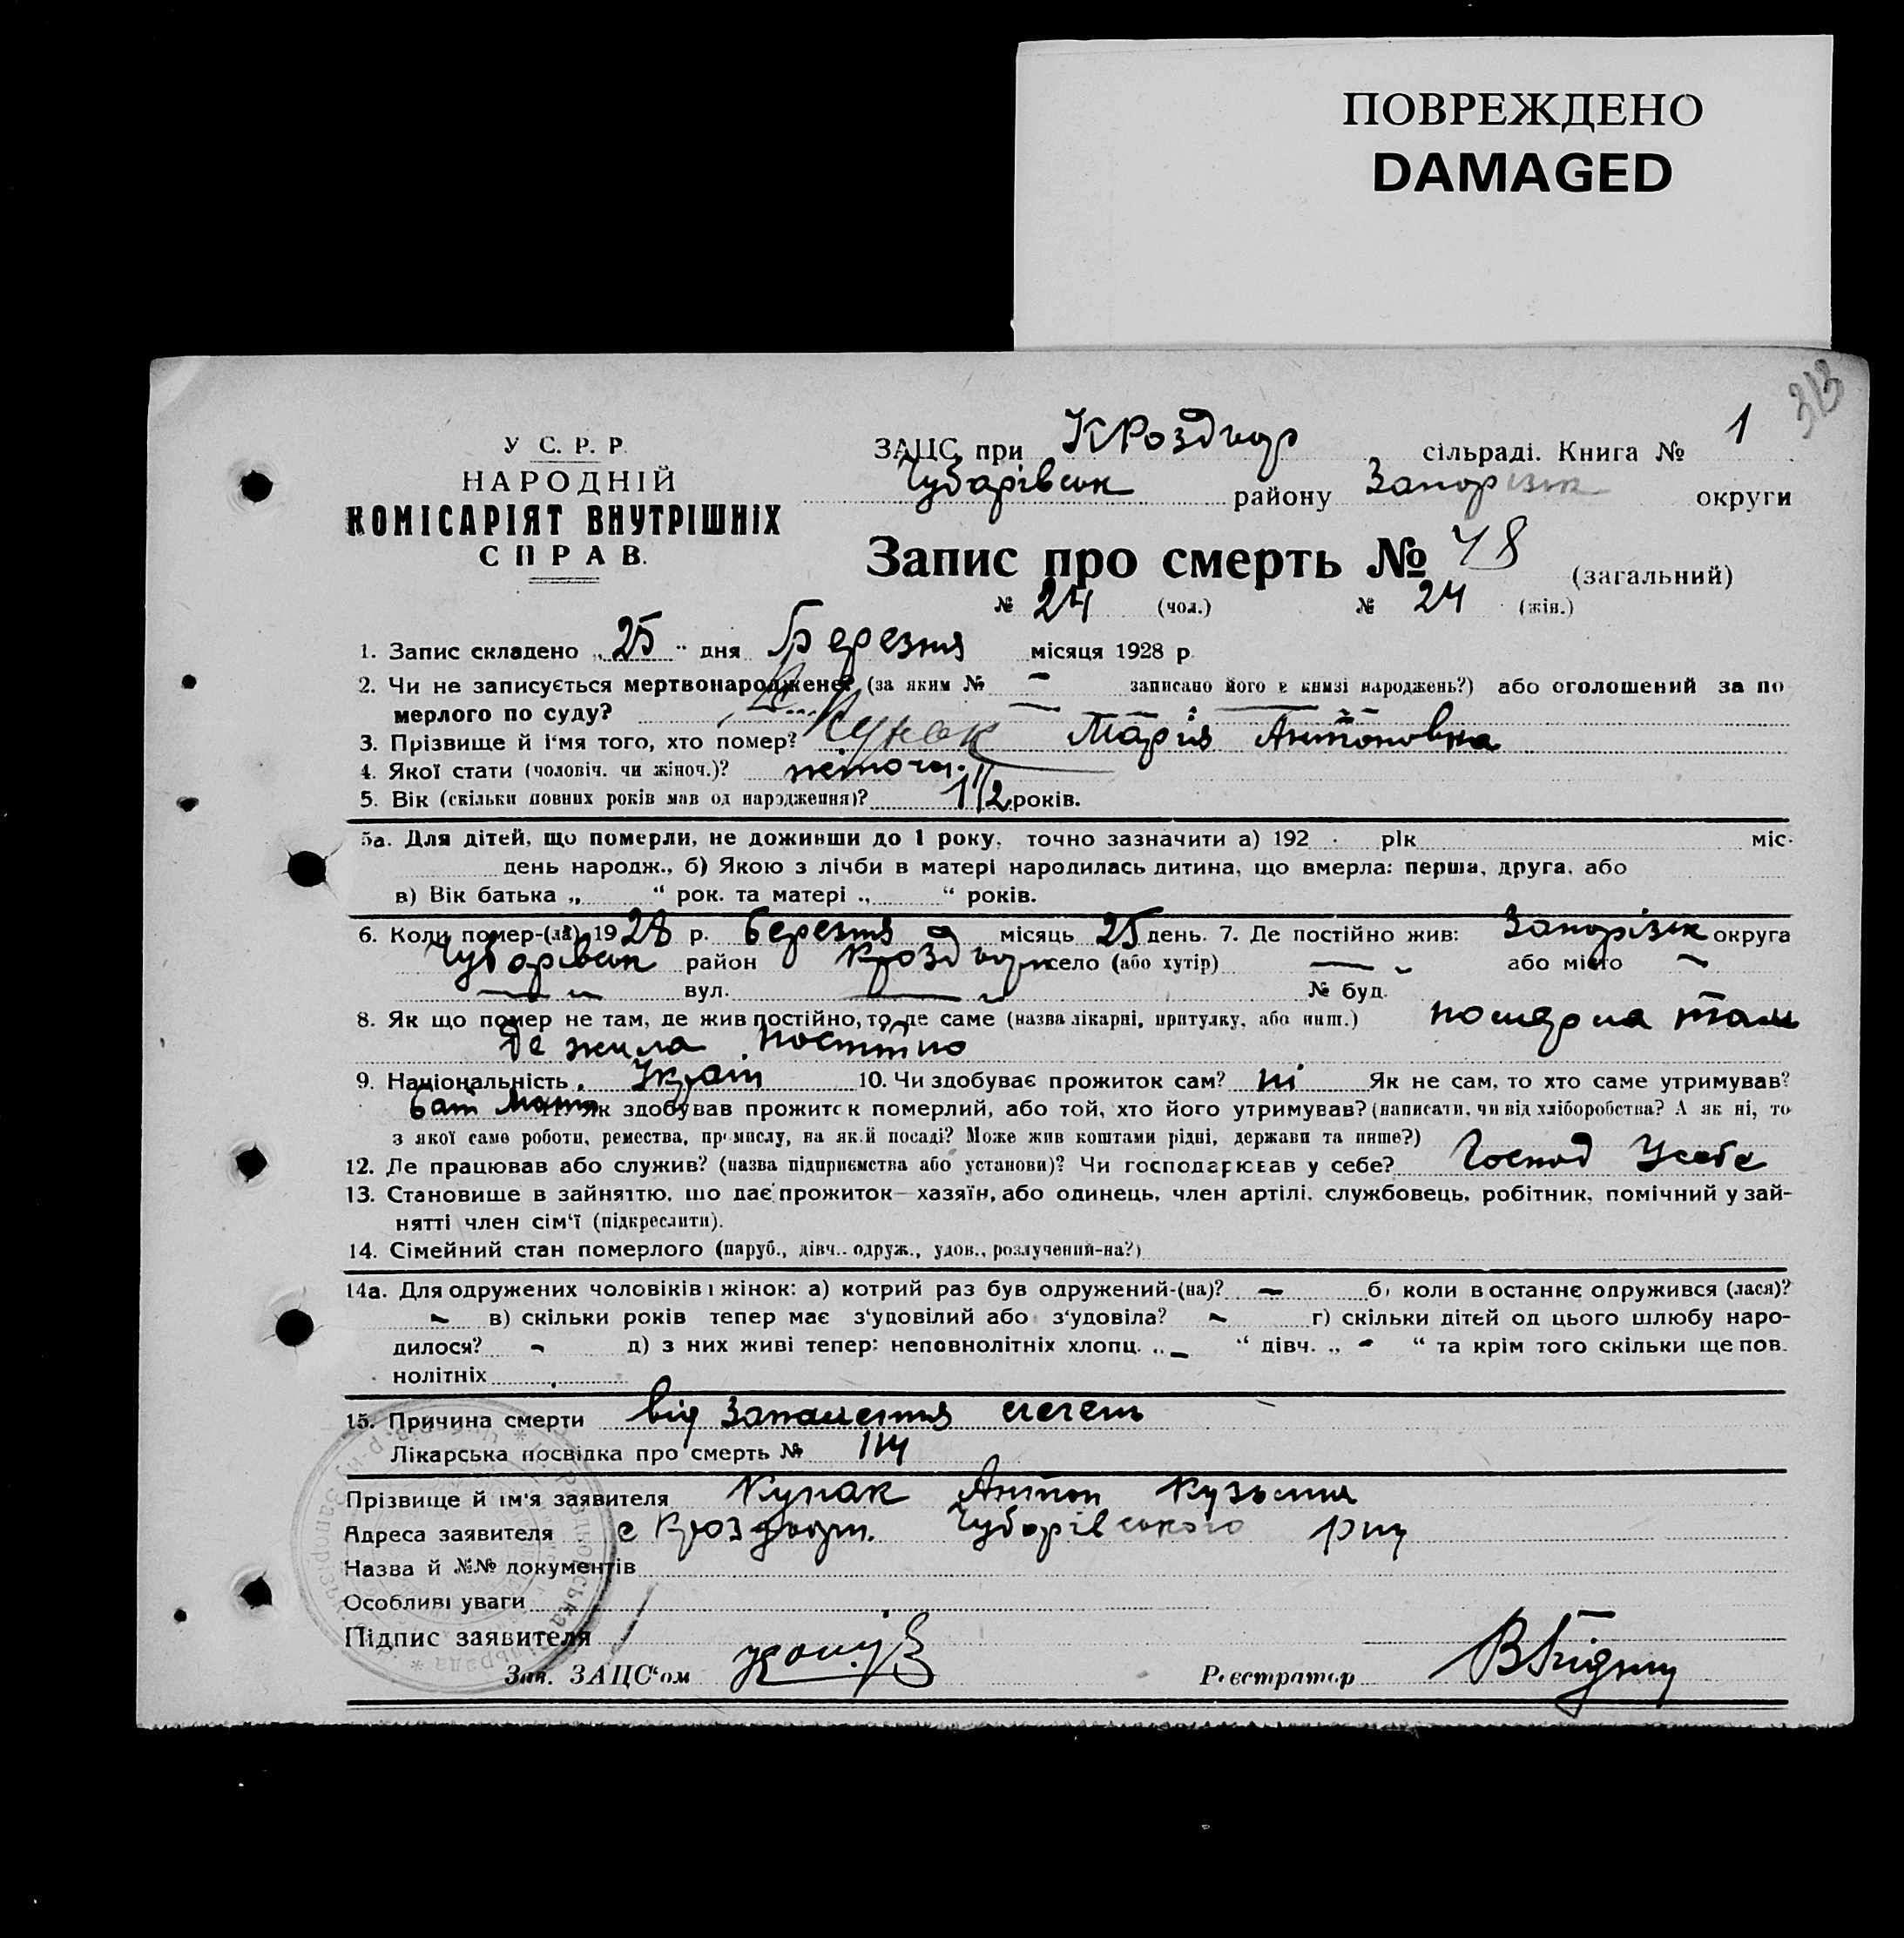 ПОВРЕЖДЕНО
DAMAGED
313
У С. Р. Р.
НАРОДНІЙ
КОМІСАРІЯТ ВНУТРІШНІХ
СПРАВ.
ЗАЦС при КРоздор сільраді. Книга № 1
Чубарівськ району Запорізк округи
Запис про смерть № 48 (загальний)
№ 24 (чол.) № 24 (жін.)
1. Запис складено „25“ дня Березня місяця 1928 р.
2. Чи не записується мертвонароджене? (за яким № — записано його в книзі народжень?) або оголошений за по
мерлого по суду?
3. Прізвище й і'мя того, хто помер? Кунак Марія Антоновна
4. Якої стати (чоловіч. чи жіноч.)? жіноча.
5. Вік (скільки повних років мав од народження)? 1 1/2 років.
5а. Для дітей, що померли, не доживши до 1 року, точно зазначити а) 192 рік міс.
день народж., б) Якою з лічби в матері народилась дитина, що вмерла: перша, друга, або
в) Вік батька „ “ рок. та матері „ “ років.
6. Коли помер-(ла) 1928 р. березня місяць 25 день. 7. Де постійно жив: Запорізк округа
Чубарівськ район Кроздор село (або хутір) — або місто ~
— вул. — № буд.
8. Як що помер не там, де жив постійно, то де саме (назва лікарні, притулку, або инш.) померла там
де жила постійно
9. Національність Украін 10. Чи здобуває прожиток сам? ні Як не сам, то хто саме утримував?
бат Мати Як здобував прожиток померлий, або той, хто його утримував? (написати, чи від хліборобства? А як ні, то
з якої саме роботи, ремества, промислу, на якій посаді? Може жив коштами рідні, держави та инше?)
12. Де працював або служив? (назва підприємства або установи)? Чи господарював у себе? Господ Усебе
13. Становище в зайняттю, що дає прожиток—хазяїн, або одинець, член артілі, службовець, робітник, помічний у зай-
нятті член сім'ї (підкреслити).
14. Сімейний стан померлого (паруб., дівч., одруж., удов., розлучений-на?)
14а. Для одружених чоловіків і жінок: а) котрий раз був одружений-(на)? — б) коли в останнє одружився (лася)?
~ в) скільки років тепер має з'удовілий або з'удовіла? ~ г) скільки дітей од цього шлюбу наро-
дилося? ~ д) з них живі тепер: неповнолітніх хлопц. „— “ дівч. „ - “ та крім того скільки ще пов.
нолітніх
15. Причина смерти від Запалення легень
Лікарська посвідка про смерть № 114
Прізвище й ім'я заявителя Кунак Антон Кузьмич
Адреса заявителя с Кроздори. Чубарівського рну
Назва й №№ документів
Особливі уваги
Підпис заявителя
Зав. ЗАЦС'ом Реєстратор